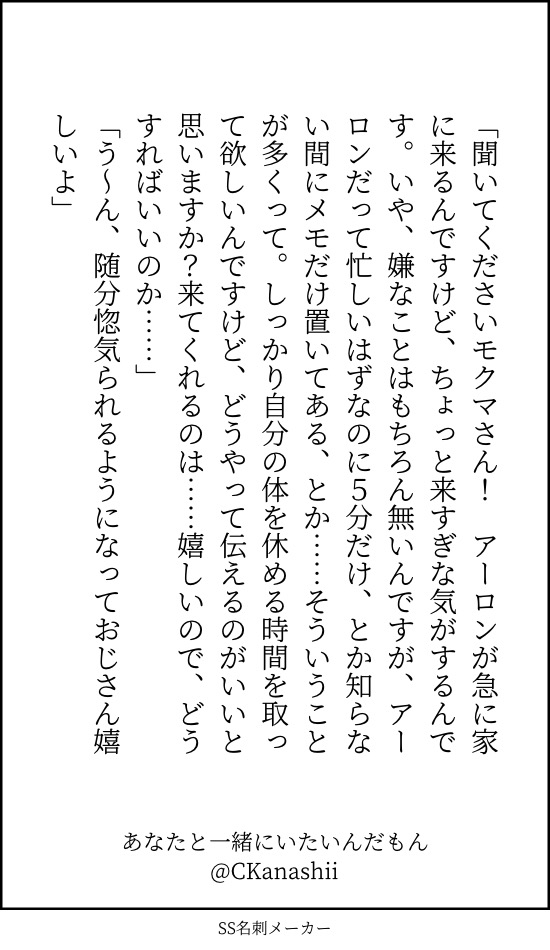 「聞いてくださいモクマさん！　アーロンが急に家
に来るんですけど、ちょっと来すぎな気がするんで
す。いや、嫌なことはもちろん無いんですが、アー
ロンだって忙しいはずなのに５分だけ、とか知らな
い間にメモだけ置いてある、とか……そういうこと
が多くって。しっかり自分の体を休める時間を取っ
て欲しいんですけど、どうやって伝えるのがいいと
思いますか？来てくれるのは……嬉しいので、どう
すればいいのか……」
「う～ん、随分惚気られるようになっておじさん嬉
しいよ」
あなたと一緒にいたいんだもん
@CKanashii
SS名刺メーカー